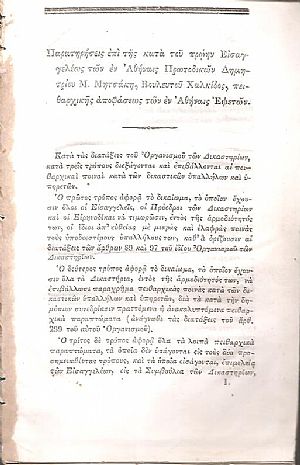 Παρατηρήσεις ἐπὶ τῆς κατὰ τοῦ πρώην Εἰσαγ-
γελέως τῶν ἐν Ἀθήναις Πρωτοδικῶν Δημη-
τρίου Μ. Μητσάκη, Βουλευτοῦ Χαλκίδος, πει-
θαρχικῆς ἀποφάσεως τῶν ἐν Ἀθήναις Ἐφετῶν.
Κατὰ τὰς διατάξεις τοῦ Ὀργανισμοῦ τῶν Δικαστηρίων,
κατὰ τρεῖς τρόπους διεξάγονται καὶ ἐπιβάλλονται αἱ πει-
θαρχικαὶ ποιναὶ κατὰ τῶν δικαστικῶν ὑπαλλήλων καὶ ὑ-
πηρετῶν.
Ὁ πρῶτος τρόπος ἀφορᾷ τὸ δικαίωμα, τὸ ὁποῖον ἔχου-
σιν ὅλοι οἱ Εἰσαγγελεῖς, οἱ Πρόεδροι τῶν Δικαστηρίων
καὶ οἱ Εἰρηνοδίκαι νὰ τιμωρῶσιν, ἐντὸς τῆς ἁρμοδιότητός
των, οἱ ἴδιοι ἀπ' εὐθείας μὲ μικρὰς καὶ ἐλαφρὰς ποινὰς
τοὺς ὑποδεεστέρους ὑπαλλήλους των, καθ' ἃ ὁρίζουσιν αἱ
διατάξεις τῶν ἄρθρων 89 καὶ 97 τοῦ ἰδίου Ὀργανισμοῦ τῶν
Δικαστηρίων.
Ὁ δεύτερος τρόπος ἀφορᾷ τὸ δικαίωμα, τὸ ὁποῖον ἔχου-
σιν ὅλα τὰ Δικαστήρια, ἐντὸς τῆς ἁρμοδιότητός των, νὰ
ἐπιβάλλωσι παραχρῆμα πειθαρχικὰς ποινὰς κατὰ τῶν δι-
καστικῶν ὑπαλλήλων καὶ ὑπηρετῶν, διὰ τὰ κατὰ τὴν δη-
μόσιον συνεδρίασιν πραττόμενα ἢ ἀνακαλυπτόμενα πειθαρ-
χικὰ παραπτώματα (ἀνάγνωθι τὰς διατάξεις τοῦ ἄρθ.
239 τοῦ αὐτοῦ Ὀργανισμοῦ).
Ὁ τρίτος δὲ τρόπος ἀφορᾷ ὅλα τὰ λοιπὰ πειθαρχικὰ
παραπτώματα, τὰ ὁποῖα δὲν ὑπάγονται εἰς τοὺς δύο προ-
σημειωθέντας τρόπους, καὶ τὰ ὁποῖα εἰσάγονται, ἐπιμελείᾳ
τῶν Εἰσαγγελέων εἰς τὰ Συμβούλια τῶν Δικαστηρίων,
1.